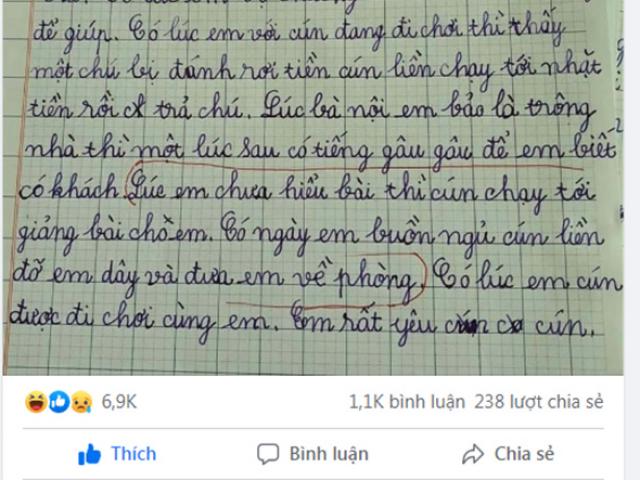 để giúp. Có lúc em với cún đang đi chơi thì thấy
một chú bị đánh rơi tiền cún liền chạy tới nhặt
tiền rồi trả chú. Lúc bà nội em bảo là trông
nhà thì một lúc sau có tiếng gâu gâu để em biết
có khách. Lúc em chưa hiểu bài thì cún chạy tới
giảng bài cho em. Có ngày em buồn ngủ cún liền
đỡ em dậy và đưa em về phòng. Có lúc em cún
được đi chơi cùng em. Em rất yêu cún.
6,9K
1,1K bình luận 238 lượt chia sẻ
Thích Bình luận Chia sẻ